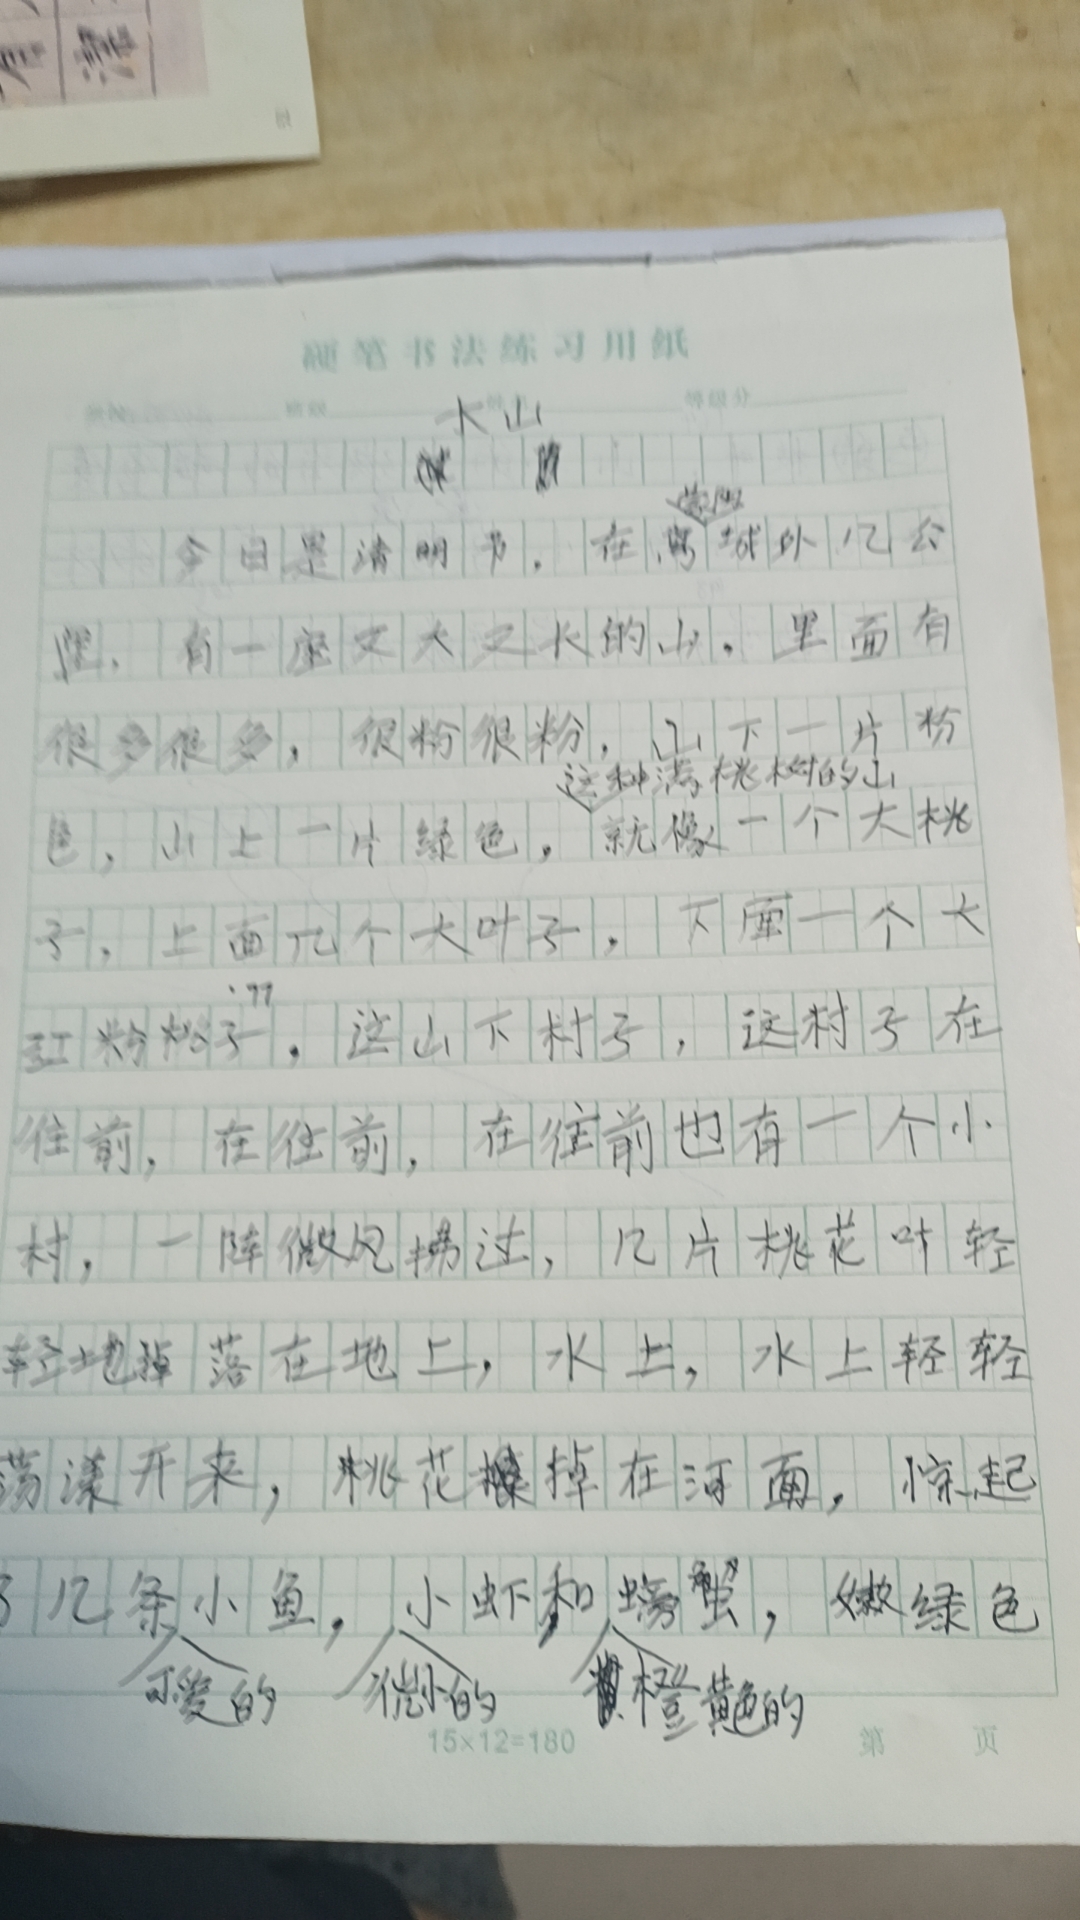 硬笔书法练习用纸
大山
今日是清明节,在离城外几公
里,有一座又大又长的山。里面有
很多很多,很粉很粉,山下一片粉
这种满桃树的山
色,山上一片绿色,就像一个大桃
子,上面几个大叶子,下面一个大
红粉桃子,这山下村子,这村子在
往前,在往前,在往前也有一个小
村,一阵微风拂过,几片桃花叶轻
轻地掉落在地上,水上,水上轻轻
荡漾开来,桃花掉在河面,惊起
了几条小鱼,小虾和螃蟹,嫩绿色
可爱的 微小的 橙黄色的
15×12=180 第 页